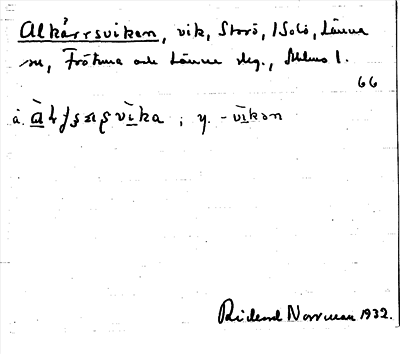 Alkärrsviken, vik, Storö, 1 Solö, Länna
sn, Frötuna och Länna skg., Sthlms l.
66
å. vika ; y. -vikən
Rickard Norrman 1932.